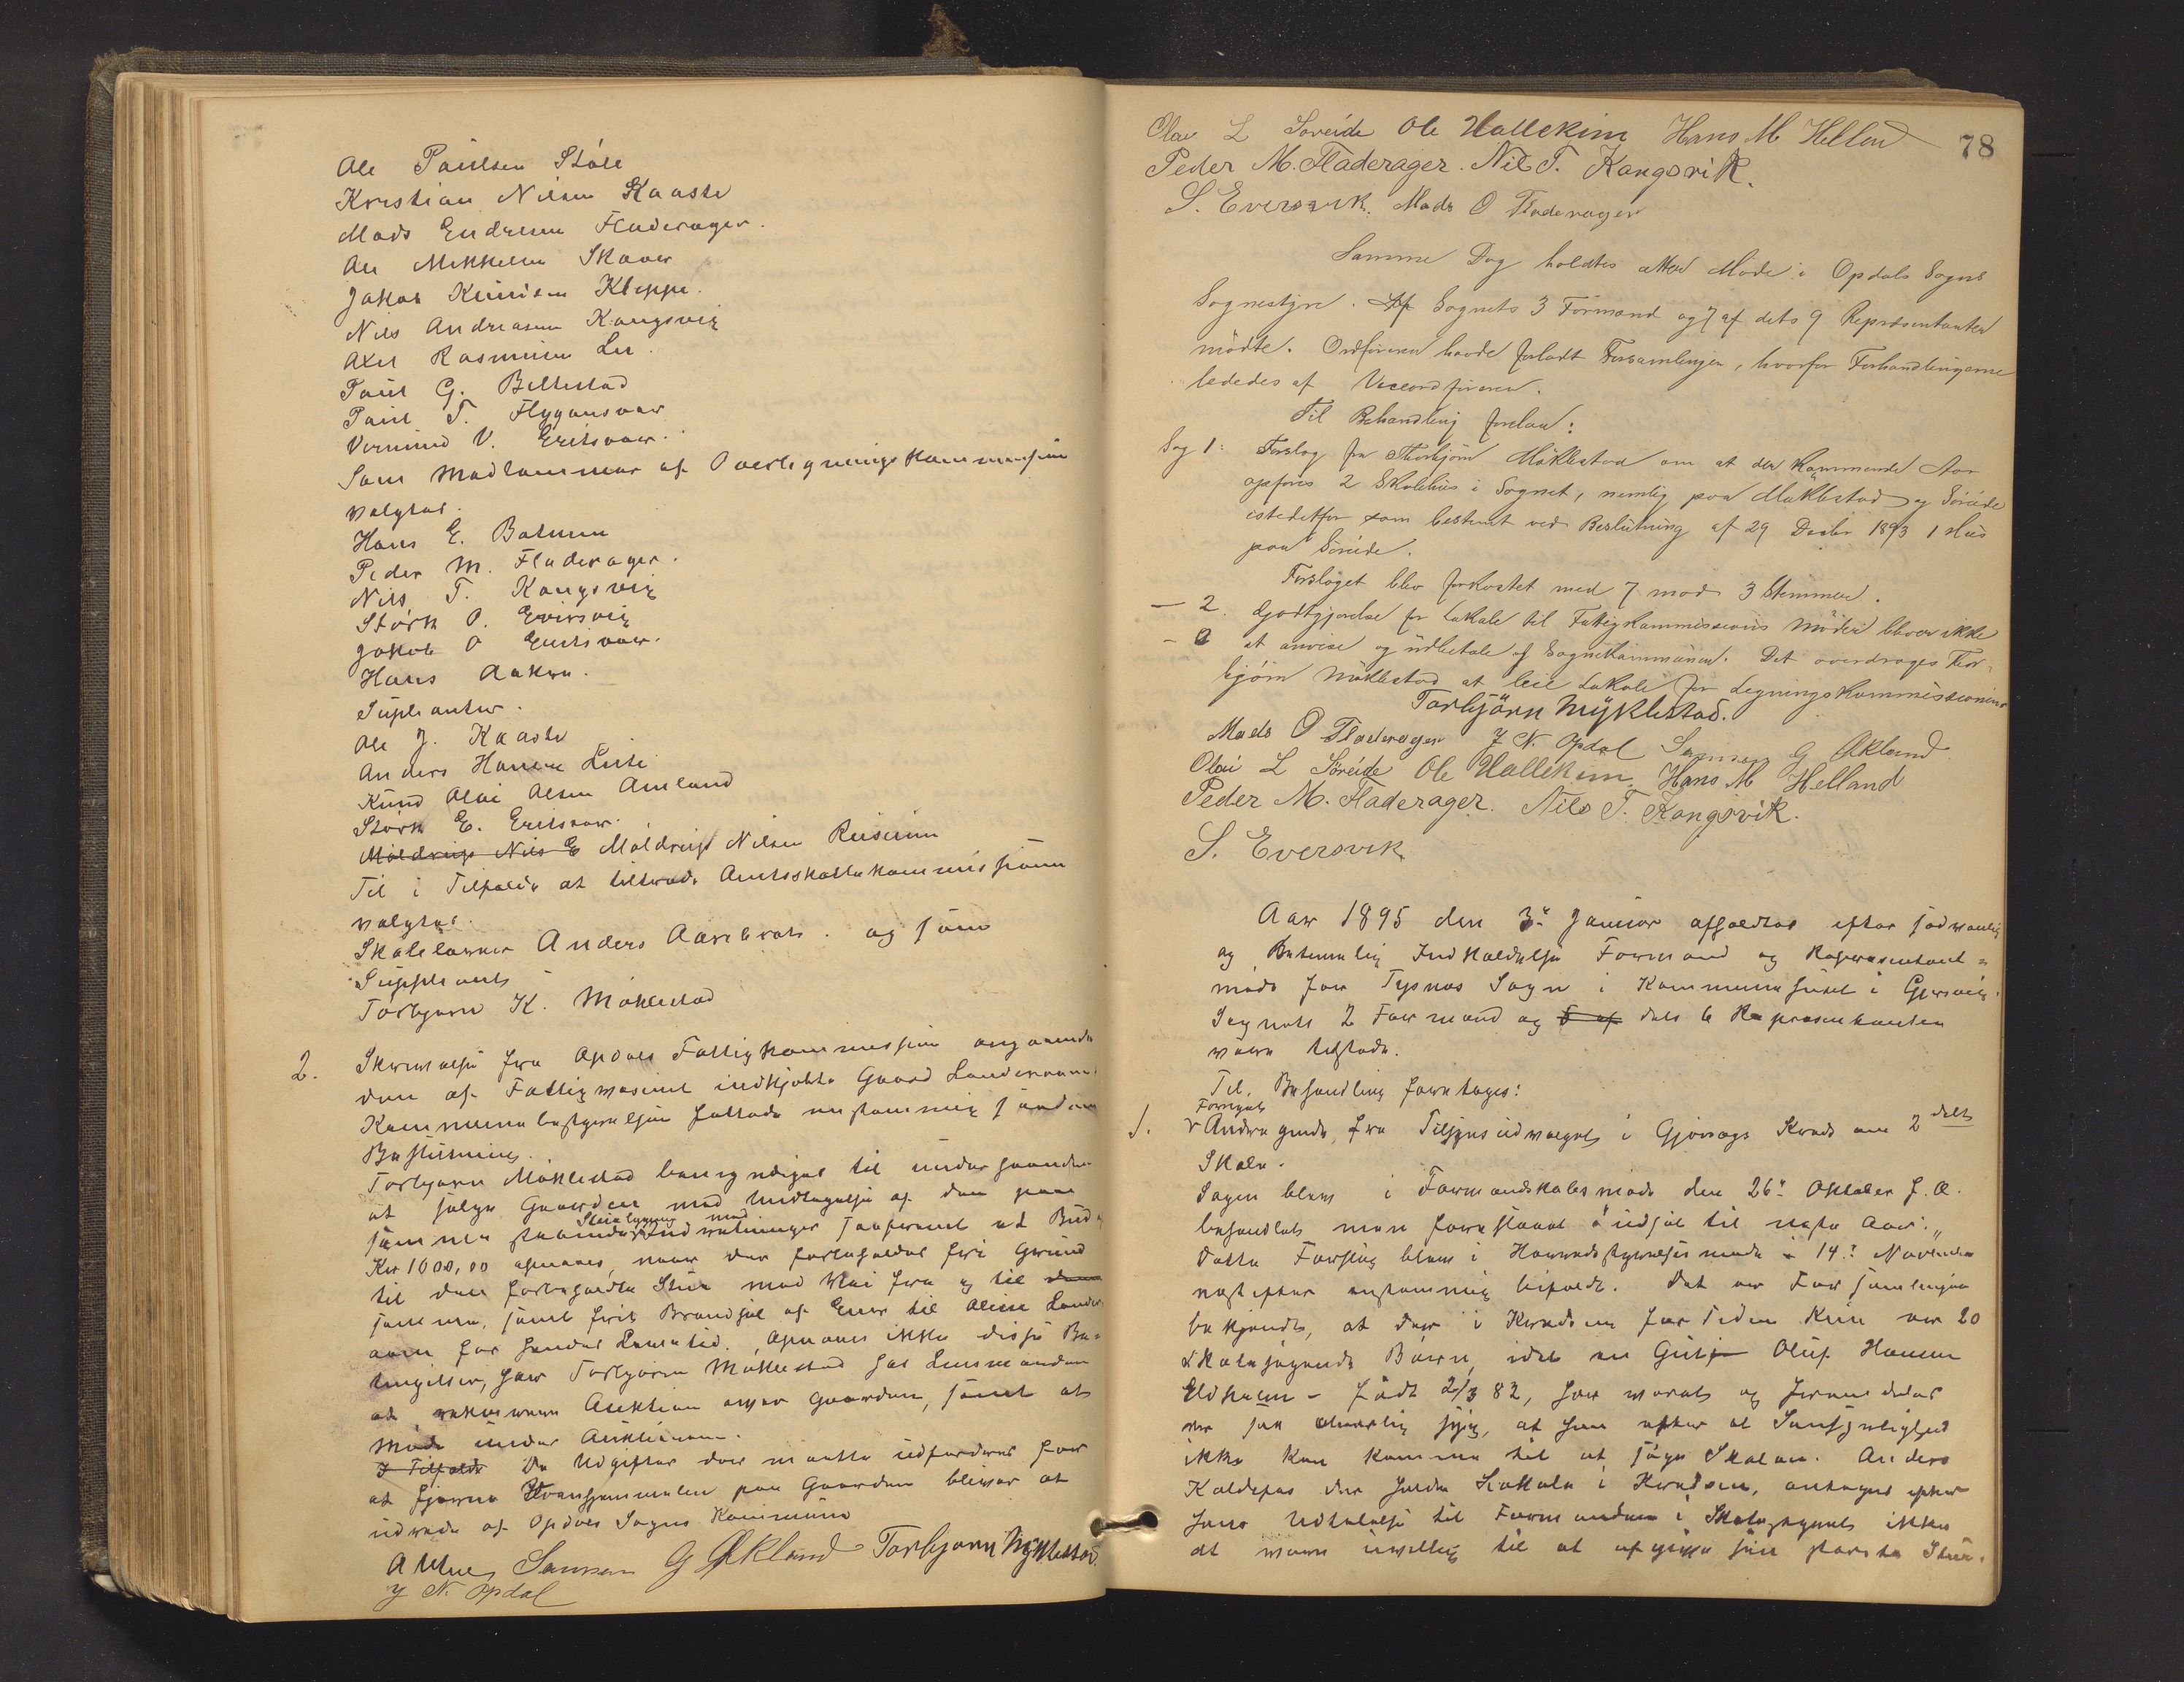 Ole Paulsen Støle
Kristian Nilsen Kaaste
Mads Endresen Fladerager.
Ole Mikkelsen Skaar
Jakob Knudsen Kleppe.
Nils Andreasen Kangsvig
Axel Rasmusen Lie.
Poul G. Bellestad
Poul T. Flygansvær
Vermund V. Eritsvær.
Som Medlemmer af Overligningskommissionen
valgtes.
Hans E. Botnen
Peder M. Fladerager.
Nils T. Kangsvig
Størk O. Eversvig
Jakob O Eritsvær.
Hans Aakre.
Suplianter.
Ole J. Kaaste
Anders Hansen Lunde
Knud Olai Olsen Amland
Størk E. Eritsvær.
Møldrup Nils E Møldrup Nilsen Reiseren
Til i Tilfælde at tiltræde Amtsskattekommissionen
valgtes.
Skolelærer Anders Aarebrot. og som
Suppleant
Torbjørn K. Møklestad
2. Skrivelse fra Opdals Fattigkommission angaaende
den af Fattigvæsenet indkjøbte Gaard Landeraaen.
Kommunebestyrelsen fattede enstemmig saadan
Beslutning.
Torbjørn Møklestad bemyndiges til underhaanden
at sælge Gaarden med Undtagelse af den paa
samme staaende Stuebygning med Indretninger saafremt et Bud
Kr 1000,00 opnaaes, naar der forbeholdes fri Grund
til den forbeholdte Stue med Vei fra og til
samme, samt frit Brændsel af Ener til Aline Lander-
aaen for hendes Levetid. Opnaaes ikke disse Be-
tingelser, har Torbjørn Møklestad hos Lensmanden
at rekvirere Auktion over Gaarden, samt at
møde under Auktionen.
I Tilfælde De Udgifter der maatte udfordres for
at fjerne Kvernhjemmelen paa Gaarden bliver at
udrede af Opdals Sogns Kommune
A Myhre Samson G Økland Torbjørn Myklestad.
J N. Opdal
78
Olai L Søreide Ole Hallekim Hans M Helland
Peder M. Fladerager. Nils T. Kangsvik.
S. Eversvik. Mads O Fladerager
Samme Dag holdtes atter Møde i Opdals Sogns
Sognestyre. Af Sognets 3 Formænd og 7 af dets 9 Repræsentanter
mødte. Ordføreren havde forladt Forsamlingen, hvorfor Forhandlingerne
lededes af Viceordføreren.
Til Behandling forelaa:
Sag 1: Forslag fra Thorbjørn Møklestad om at der kommende Aar
opføres 2 Skolehus i Sognet, nemlig paa Møklestad og Søreide
istedetfor som bestemt ved Beslutning af 29 Decbr 1893 1 Hus
paa Søreide.
Forslaget blev forkastet med 7 mod 3 Stemmer.
— 2. Godtgjørelse for Lokale til Fattigkommissions Møder bliver ikke
at anvise og udbetale af Sognekommunen. Det overdrages Thor-
bjørn Møklestad at leie Lokale for Ligningskommissionens
Torbjørn Myklestad.
Mads O Fladerager J N. Opdal Samson G Økland
Olai L Søreide Ole Hallekim. Hans M Helland
Peder M. Fladerager. Nils T. Kangsvik.
S. Eversvik
Aar 1895 den 3. Januar afholdtes efter sædvanlig
og betimelig Indkaldelse Formand og Repræsentant-
møde for Tysnæs Sogn i Kommunehuset i Gjersvig.
Sognets 2 Formænd og 5 af dets 6 Repræsentanter
vare tilstede.
Til Behandling foretages:
1. Fornyet Andragende fra Tilsynsudvalget i Gjøvags Kreds om 2 delt
Skole.
Sagen blev i Formandskabsmøde den 26. Oktober f. A.
behandlet men foreslaaet "udsat til næste Aar."
Dette Forslag blev i Herredsstyrelsesmøde 14. November
næstefter enstemmig bifaldt. Det er Forsamlingen
bekjendt, at der i Kredsen for Tiden kun er 20
skolesøgende Børn, idet en Gut Oluf Hansen
Eldholm – født 2/3 82, har været og fremdeles
er saa alvorlig syg, at han efter al Sandsynlighed
ikke kan komme til at søge Skolen. Anders
Koldefos der holder Lokale i Kredsen, antages efter
hans Udtalelse til Formanden i Skolestyret ikke
at være uvillig til at afgive sin største Stue.